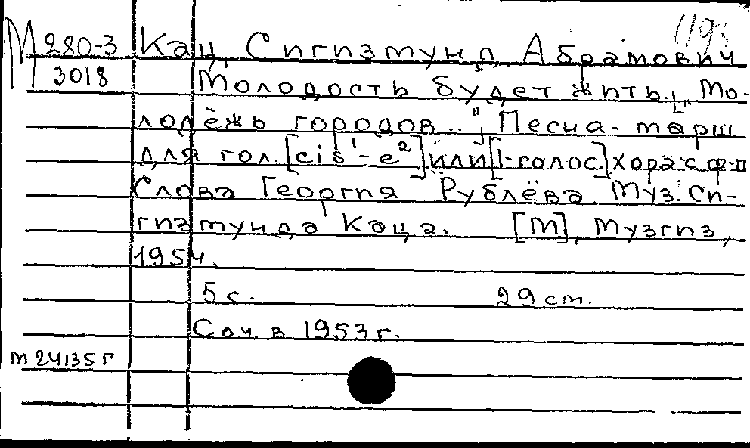 М 280-3 Кац, Сигизмунд Абрамович
3018 Молодость будет жить. ["Мо-
лодёжь городов..."] Песня-марш
для гол. [cis¹-e²] или [1-голос.] хора с ф-п
Слова Георгия Рублёва. Муз. Си-
гизмунда Каца. [М], Музгиз,
1954.
5 с. 29 cm.
Соч. в 1953 г.
М 24135 Г